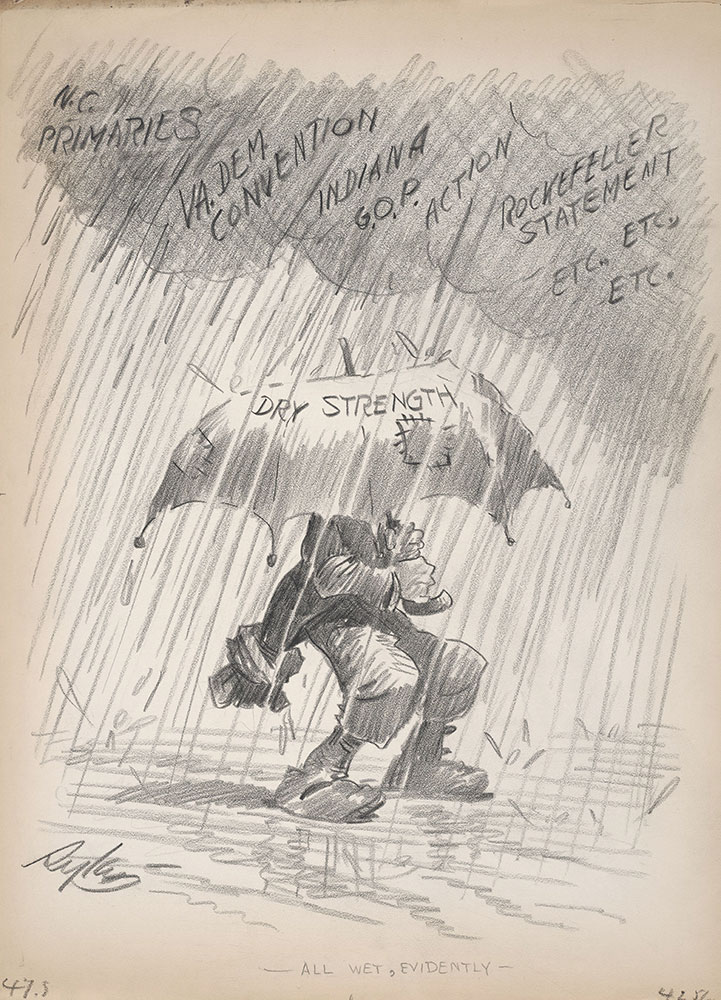 N.C.
PRIMARIES
VA. DEM.
CONVENTION
INDIANA
G.O.P. ACTION
ROCKEFELLER
STATEMENT
ETC., ETC.,
ETC.
DRY STRENGTH
— ALL WET, EVIDENTLY —